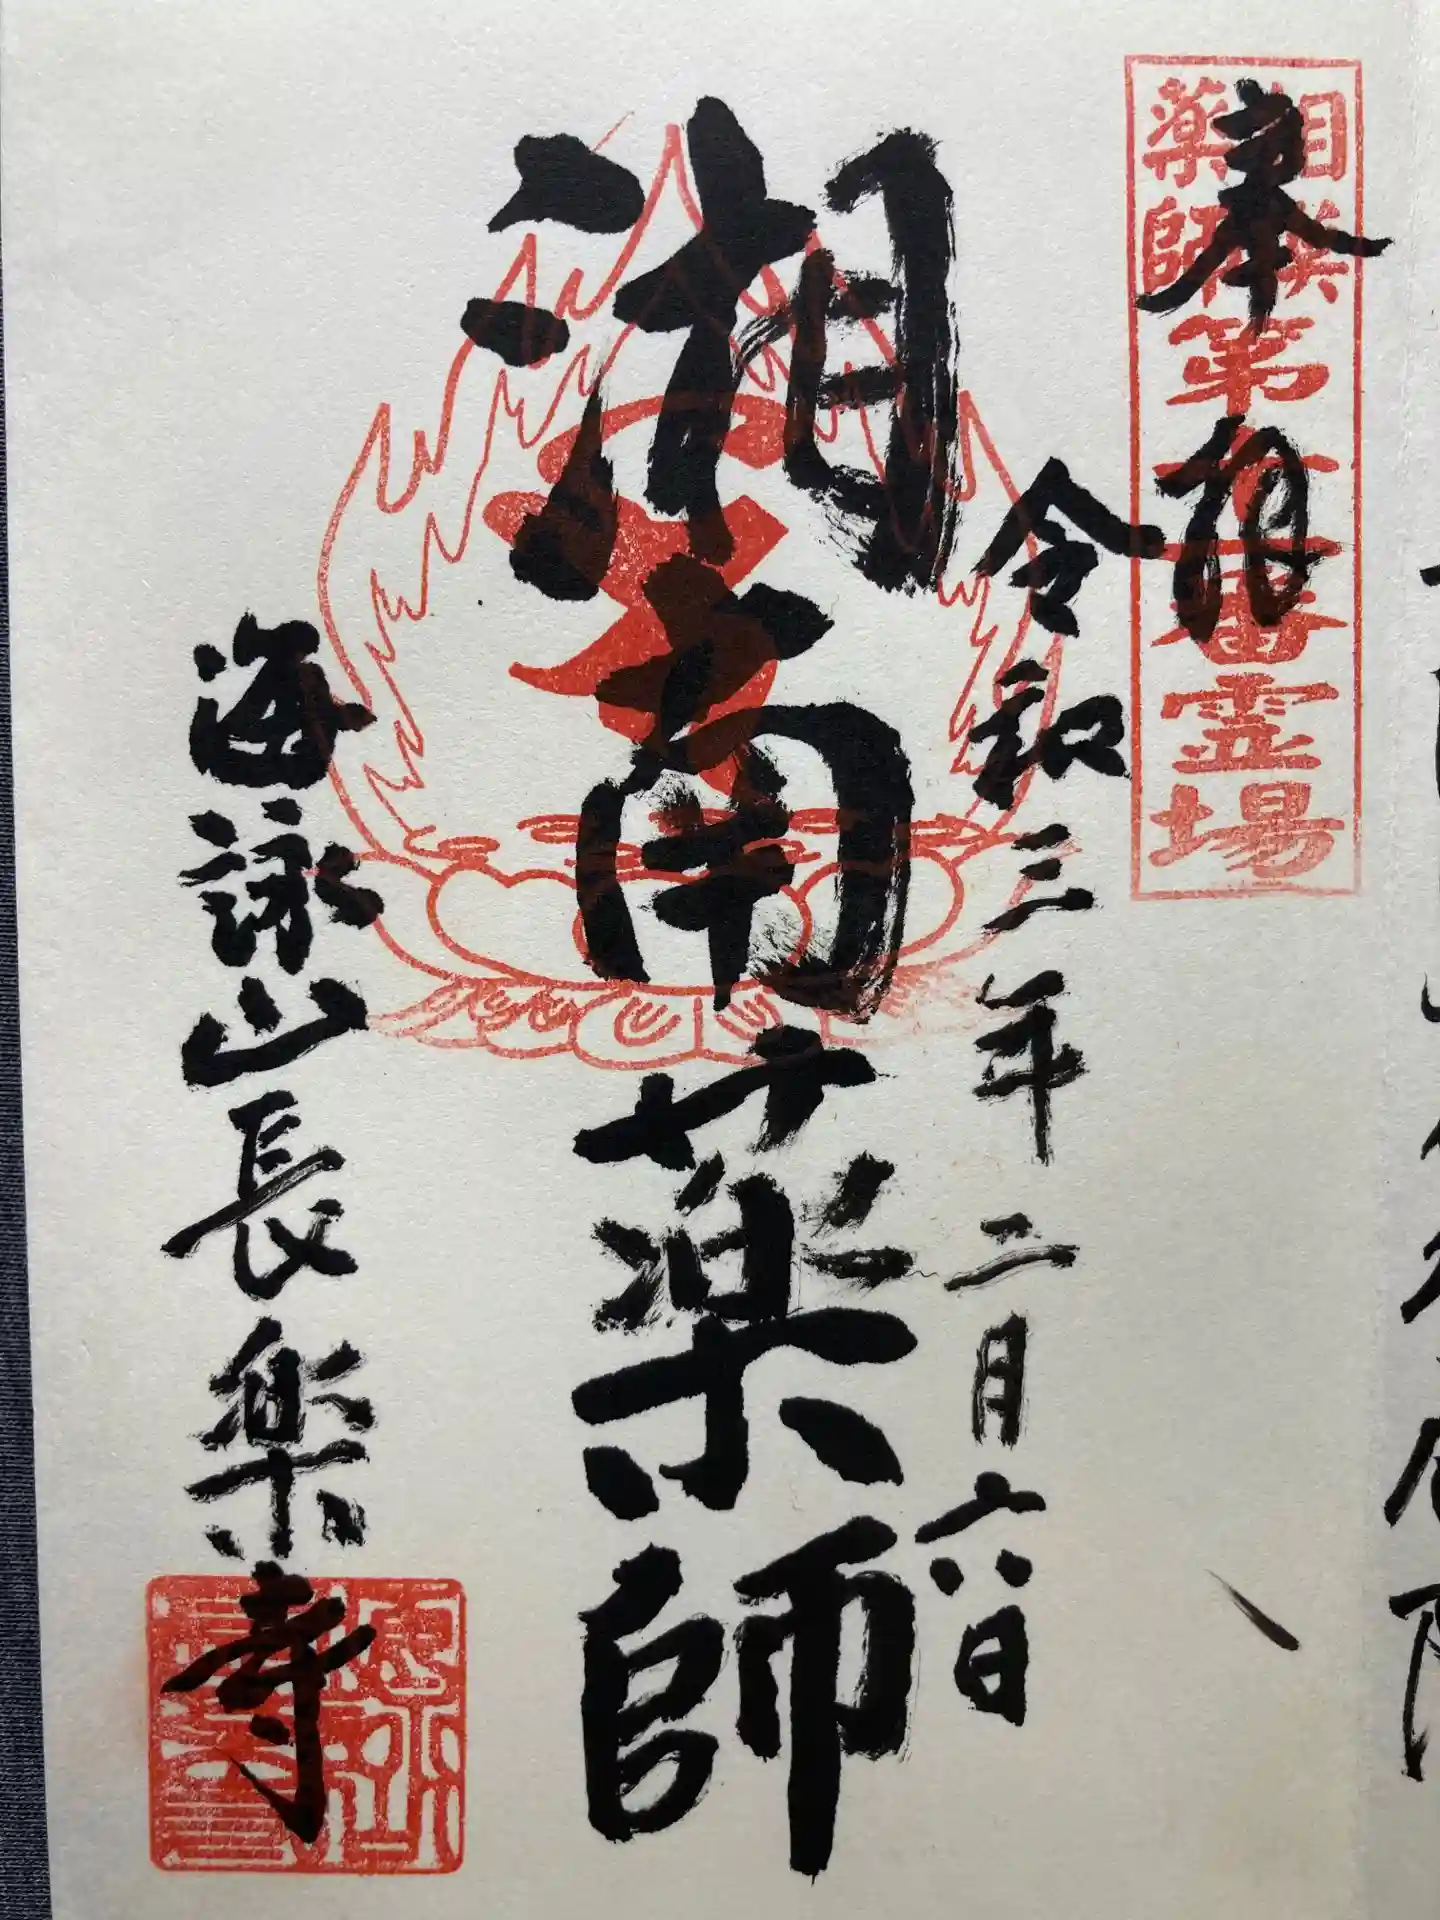 奉拝
相模薬師
霊場
令和三年二月六日
湘南薬師
海詠山長楽寺